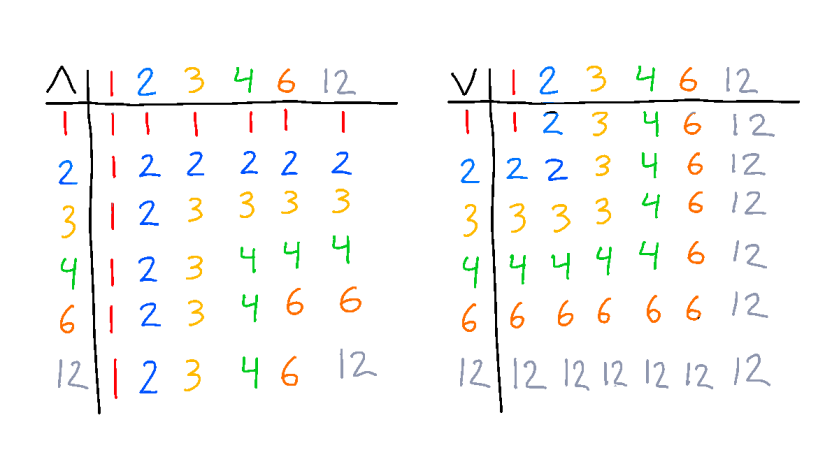 ∧ 1 2 3 4 6 12
1 1 1 1 1 1 1
2 1 2 2 2 2 2
3 1 2 3 3 3 3
4 1 2 3 4 4 4
6 1 2 3 4 6 6
12 1 2 3 4 6 12
∨ 1 2 3 4 6 12
1 1 2 3 4 6 12
2 2 2 3 4 6 12
3 3 3 3 4 6 12
4 4 4 4 4 6 12
6 6 6 6 6 6 12
12 12 12 12 12 12 12